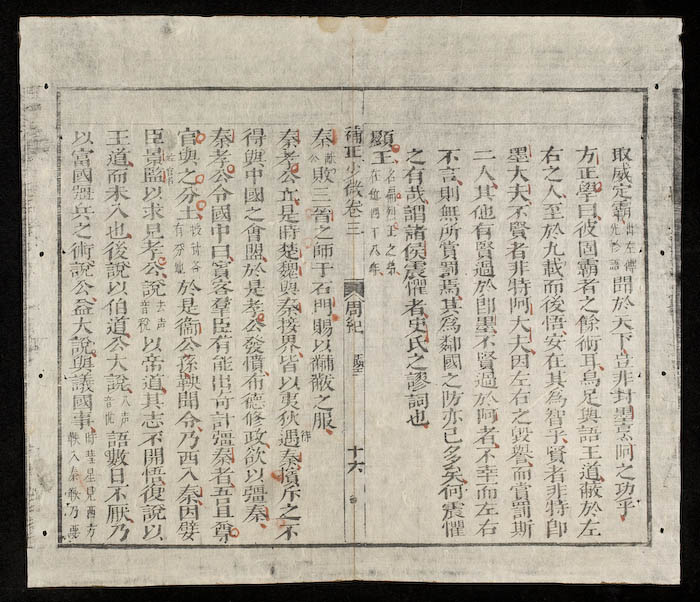 取威定霸出左傳先軫語聞於天下豈非封墨烹阿之功乎
方正學曰彼固霸者之餘術耳烏足與語王道蔽於左
右之人至於九越而後悟安在其為智乎賢者非特即
墨大夫不賢者非特阿大夫因左右之毀譽而賞罰斯
二人其他有賢過於卽墨不賢過於阿者不幸而左右
不言則無所賞罰焉其為鄰國之防亦已多矣何震懼
之有哉謂諸侯震懼者史氏之謬詞也
顯王名扁烈王之弟在位四十八年
補正少微卷三 周紀 顯王 十六
秦獻公敗三晉之師于石門賜以黼黻之服
秦孝公立是時楚魏與秦接界皆以夷狄遇待秦擯斥之不
得與中國之會盟於是孝公發憤布德修政欲以彊秦
秦孝公令國中曰賓客羣臣有能出奇計彊秦者吾且尊
官與之分土於是衞公孫鞅聞令乃西入秦因嬖
臣景監以求見孝公說去声音稅以帝道其志不開悟復說以
王道而未入也後說以伯道公大說音悅語數日不厭乃
以富國彊兵之術說公公大說與議國事時彗星見西方鞅入秦